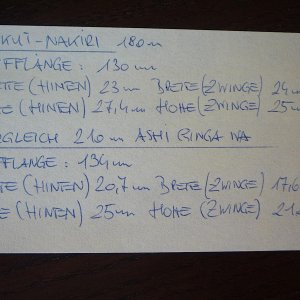 KUI-NAKIRI 180m
FFLÄNGE: 130mm
TE (HINTEN) 23mm BREITE (ZWINGE) 24m
E (HINTEN) 27,4mm HÖHE (ZWINGE) 25m
RGLEICH 210m ASHI GINGA WA
FFLÄNGE: 134mm
TE (HINTEN) 20,7mm BREITE (ZWINGE) 17,6
E (HINTEN) 25mm HÖHE (ZWINGE) 21m